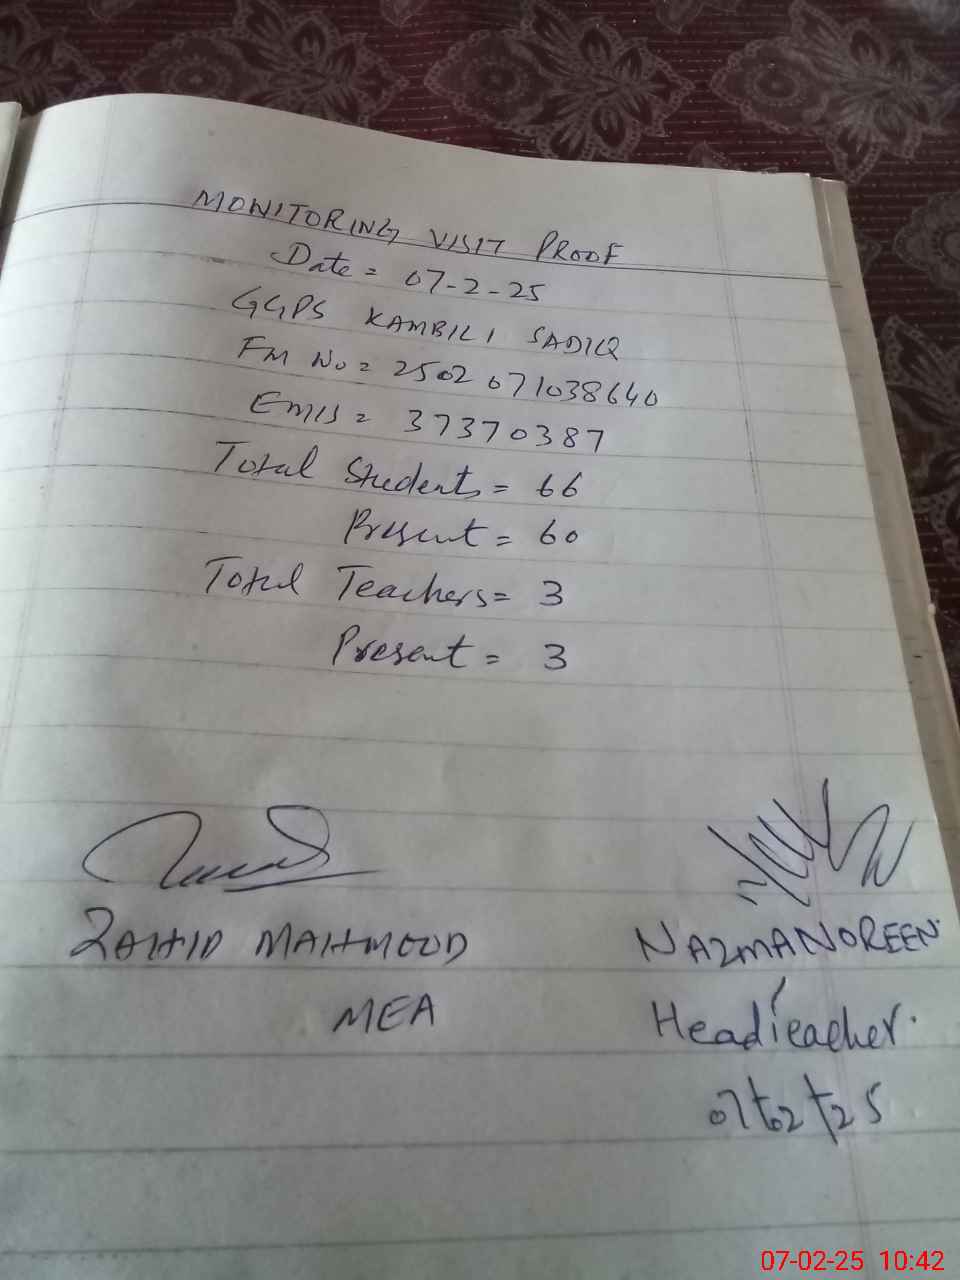 MONITORING VISIT PROOF
Date = 07-2-25
GGPS KAMBILI SADIQ
FM No = 2502071038640
EMIS = 37370387
Total Students = 66
Present = 60
Total Teachers = 3
Present = 3
ZAHID MAHMOOD
MEA
NAZMANOREEN.
Headteacher.
07-02-25 10:42